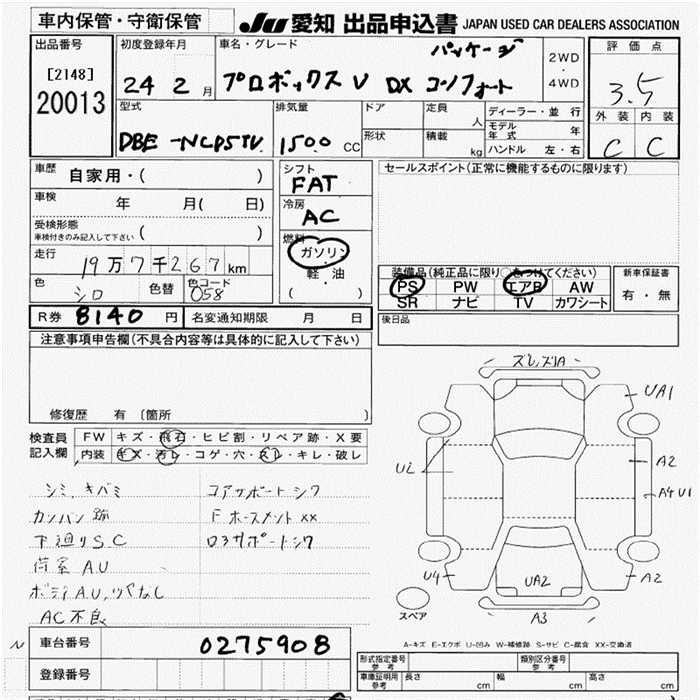 車内保管・守衛保管
JU 愛知 出品申込書 JAPAN USED CAR DEALERS ASSOCIATION
出品番号
[2148]
20013
初度登録年月
24 2 月
車名・グレード
パッケージ
プロボックスV DX コンフォート
2WD
・
4WD
評価点
3.5
外装 内装
C C
型式
DBE-NCP51V
排気量
1500 CC
ドア
形状
定員
人
積載
kg
ディーラー・並行
モデル年式 年
ハンドル 左・右
車歴
自家用・( )
車検
年 月( 日)
受検形態
車検付きのみ記入して下さい ( )
走行
19万7千267km
色
シロ
色替
色コード
058
シフト
FAT
冷房
AC
燃料
ガソリン
・
軽油
( )
セールスポイント(正常に機能するものに限ります)
装備品(純正品に限り○をつけてください)
PS PW エアB AW
SR ナビ TV カワシート
新車保証書
有・無
R券 8140 円
名変通知期限 月 日
後日品
注意事項申告欄(不具合内容等は具体的に記入して下さい)
修復歴 有 〔箇所
検査員
記入欄
FW キズ・飛石・ヒビ割・リペア跡・X要
内装 キズ・汚レ・コゲ・穴・スレ・キレ・破レ
シミ、キバミ
カンバン跡
下廻りS.C
荷室A.U
ボデーA.U、ツヤなし
AC不良
コアサポートシワ
Fホースメント××
ロアサポートシワ
ズレ、ズリA
UA1
U2
A2
A4 U1
U4
UA2
A2
A3
スペア
A-キズ E-エクボ U-凹み W-補修跡 S-サビ C-腐食 XX-交換済
車台番号
0275908
登録番号
形式指定番号
参考
類別区分番号
参考
車庫証明用
参考
長さ cm
幅 cm
高さ cm